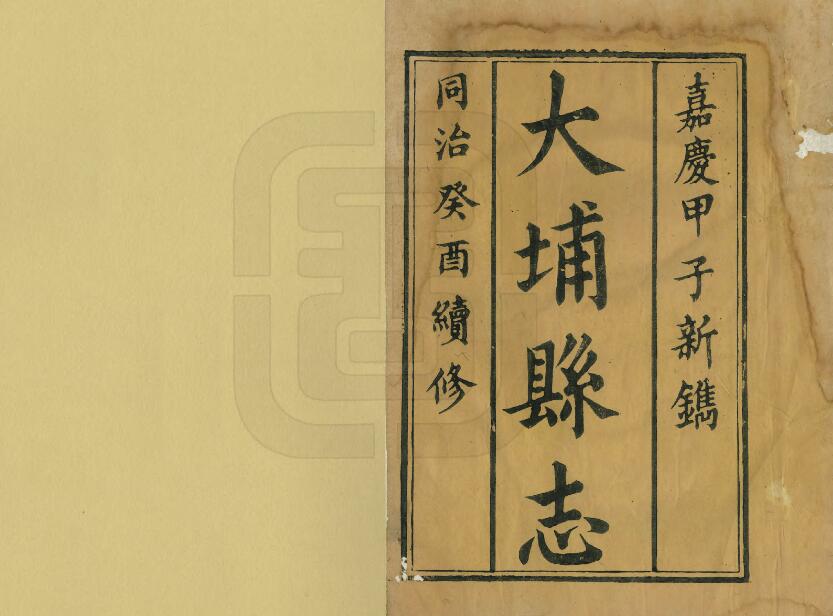 嘉慶甲子新鐫
大埔縣志
同治癸酉續修